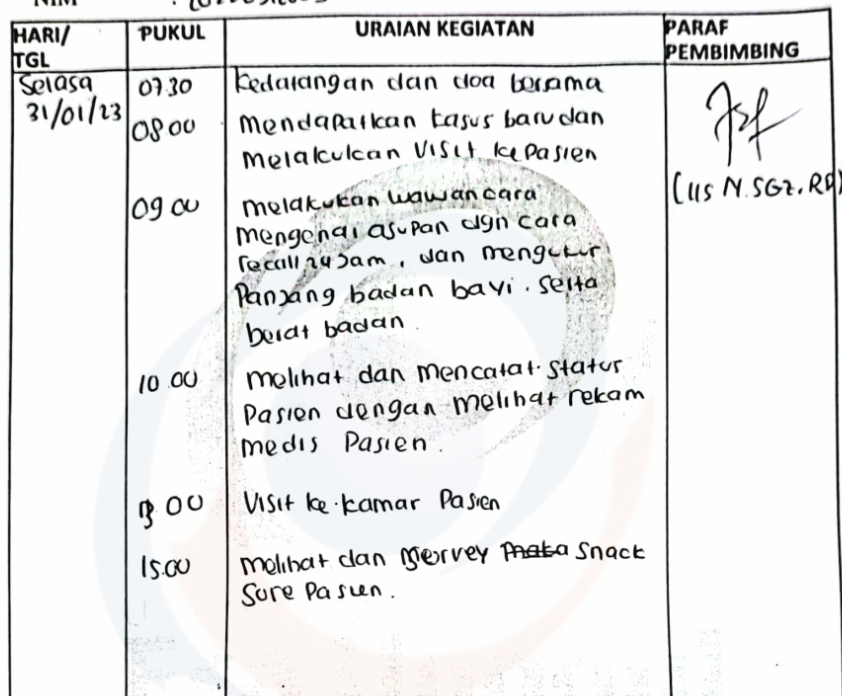 NIM :
HARI/ TGL PUKUL URAIAN KEGIATAN PARAF PEMBIMBING
Selasa 07.30 Kedatangan dan doa bersama
31/01/23
08.00 Mendapatkan kasus baru dan
Melakukan Visit ke Pasien
(IIS N. SGz. RD)
09.00 melakukan wawancara
Mengenai asupan dgn cara
recall 24 Jam, dan mengukur
Panjang badan bayi. serta
berat badan.
10.00 Melihat dan Mencatat status
Pasien dengan melihat rekam
medis Pasien.
13.00 Visit ke kamar Pasien
15.00 Melihat dan Snack
Sore Pasien.